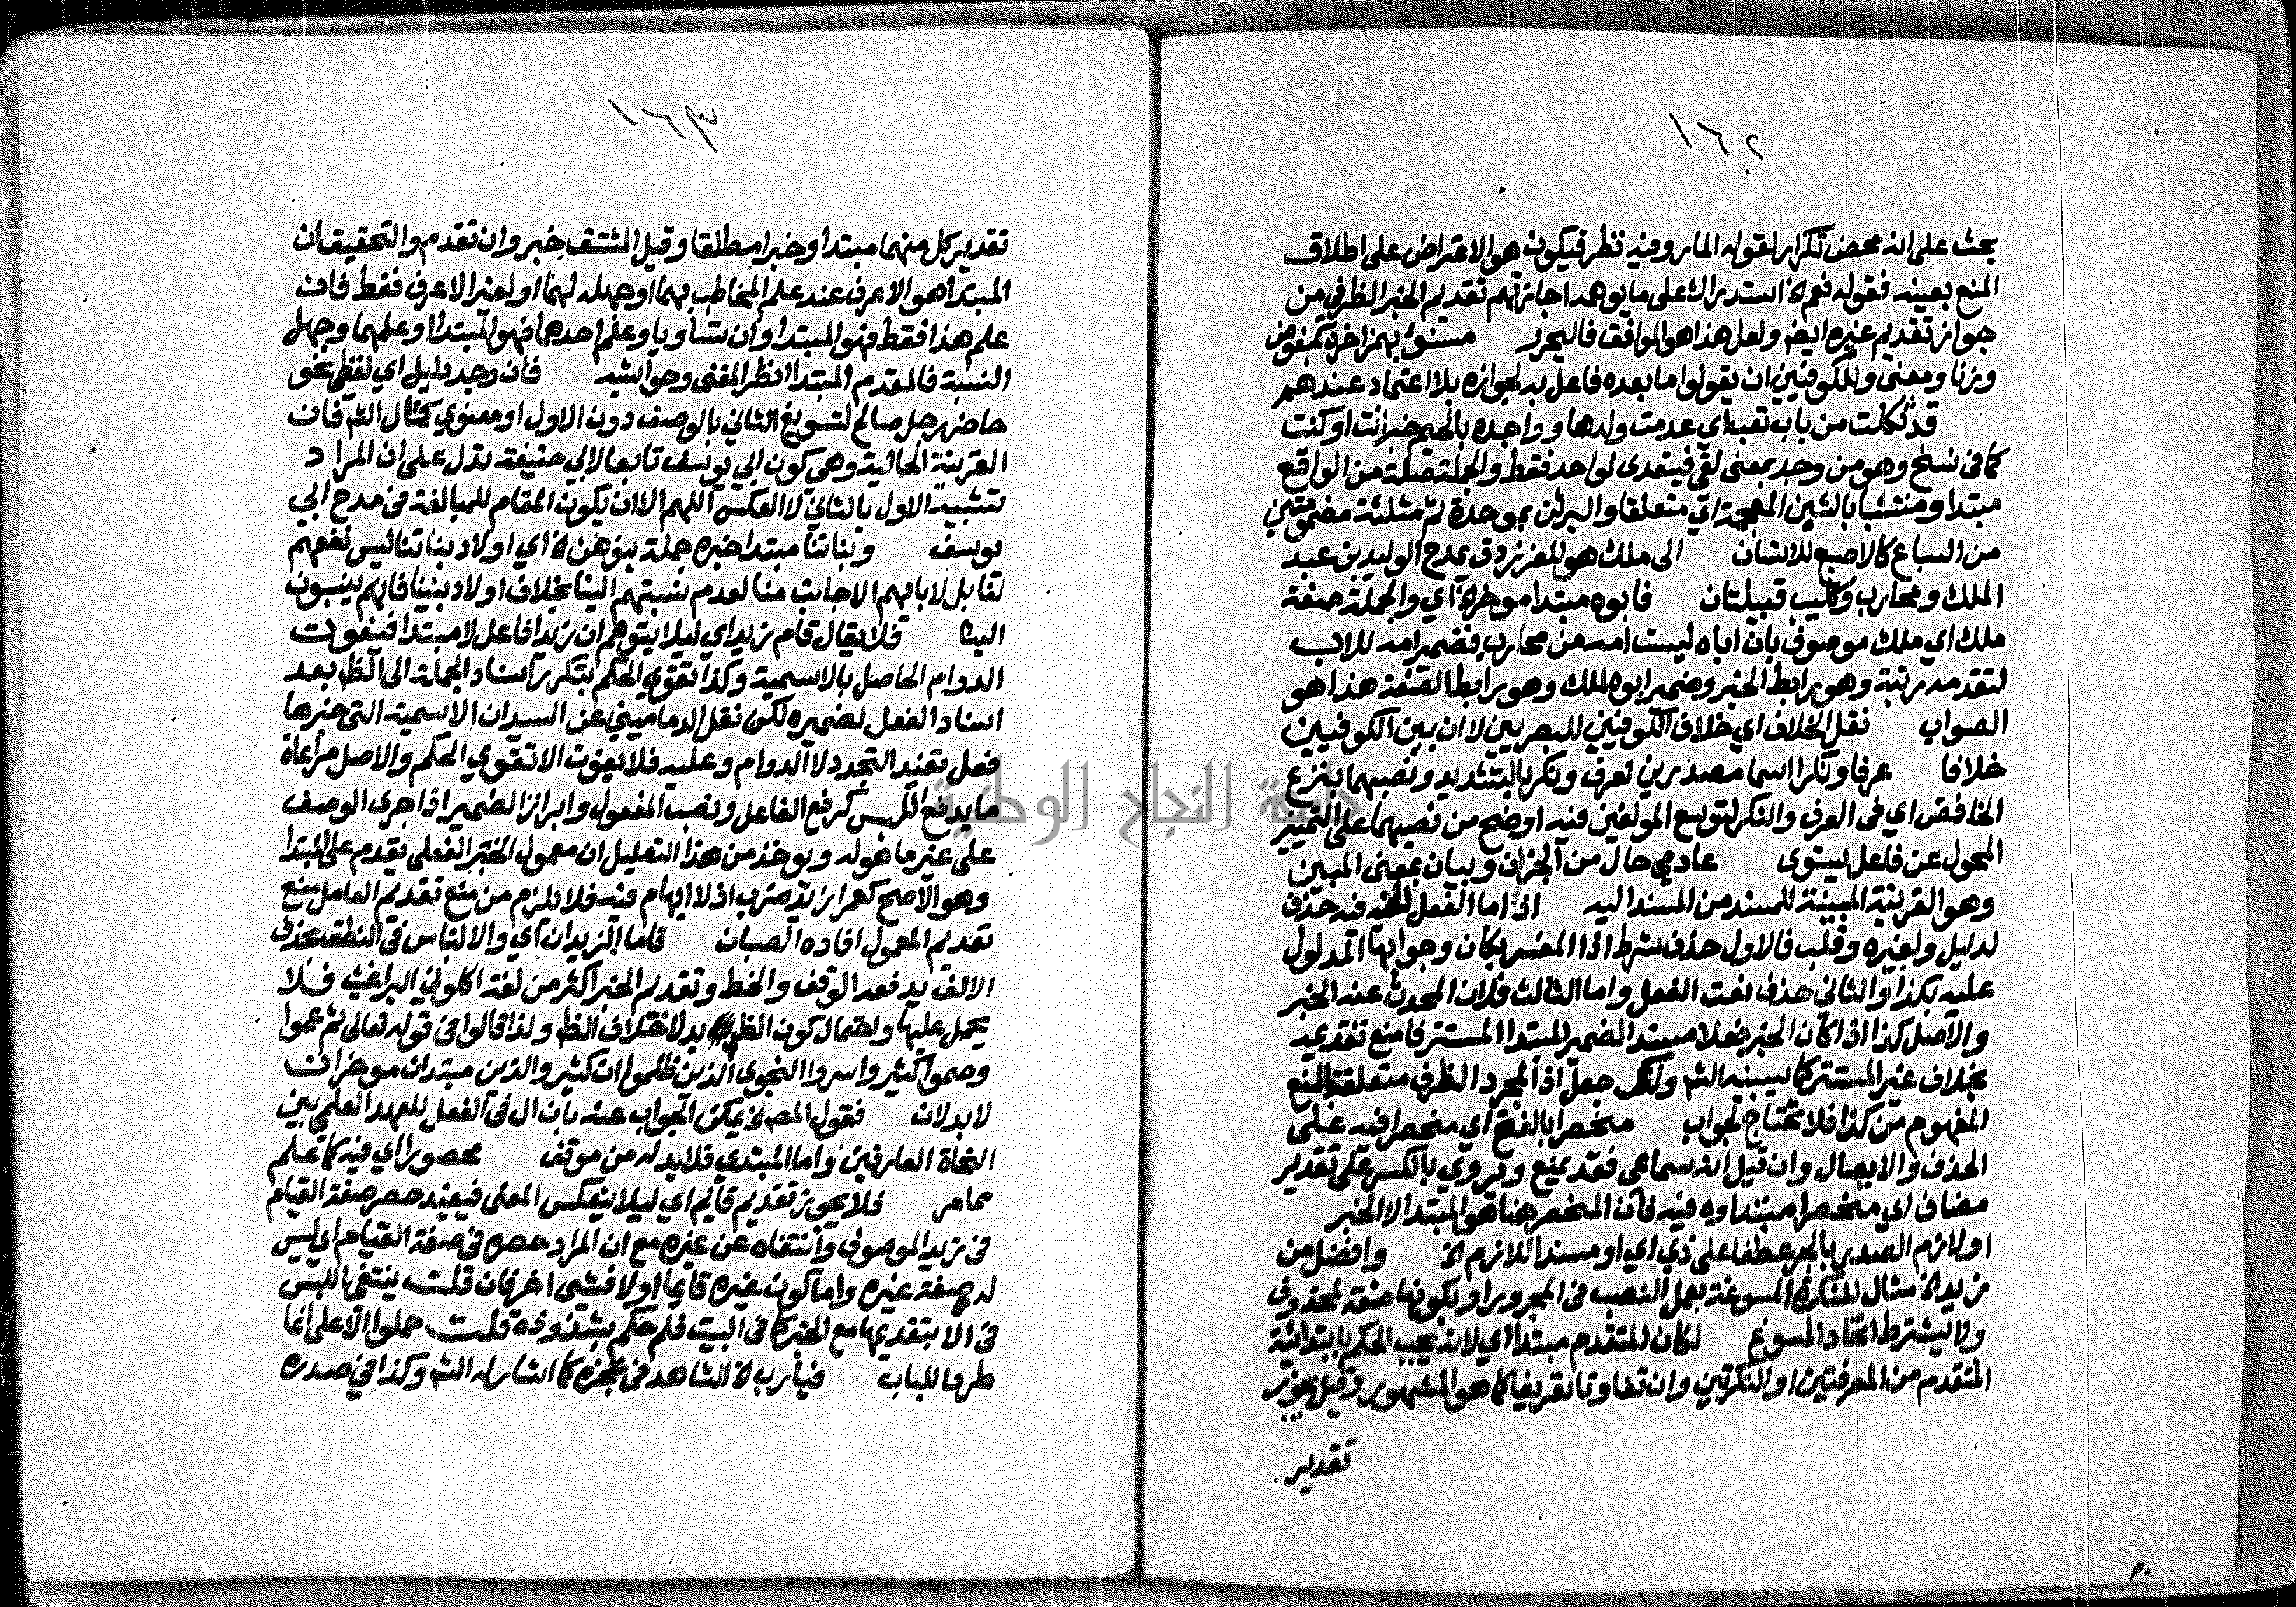 ١٦٢
بحث على انه محض تكرار لقوله المار وفيه نظر فيكون هو الاعتراض على اطلاق
المنع بعينه فقوله نعم الخ استدراك على ما يوهمه اجازتهم تقديم الخبر الظرفي من
جواز تقديم غيره ايض ولعل هذا هو الموافق فاليحرر مشنوء بهمز اخره كمبغوض
وزنا ومعنى وللكوفيين ان يقولوا ما بعده فاعل به لجوازه بلا اعتماد عندهم
قد ثكلت من باب تعب اي عدمت ولدها وواجده بالجيم خبر انت او كنت
كما في نسخ وهو من وجد بمعنى لقي فيتعدى لواحد فقط والجملة صلة من الواقع
مبتدا ومنتشبا بالشين المعجمة اي متعلقا والبرثن بموحدة ثم مثلثة مضمومتين
من السباع كالاصبع للانسان الى ملك هو للفرزدق يمدح الوليد بن عبد
الملك ومحارب وكليب قبيلتان فابوه مبتدا موخر الخ اي والجملة صفة
ملك اي ملك موصوف بان اباه ليست امه من محارب فضمير امه للاب
لتقدمه رتبة وهو رابط الخبر وضمير ابوه للملك وهو رابط الصفة هذا هو
الصواب نقل الخلاف اي خلاف الكوفيين للبصريين لا ان بين الكوفيين
خلافا عرفا ونكرا اسما مصدرين لعرف ونكر بالتشديد ونصبهما بنزع
الخافض اي في العرف والنكر لتوسع المولفين فيه اوضح من نصبهما على التمييز
المحول عن فاعل يستوى عادمي حال من الجزان وبيان بمعنى المبين
وهو القرينة المبينة للمسند من المسند اليه اذا ما الفعل الخ فيه حذف
لدليل ولغيره وقلب فالاول حذف شرط اذا المفسر بكان وجوابها المدلول
عليه بكذا والثاني حذف نعت الفعل واما الثالث فلان المحدث عنه الخبر
والاصل كذا اذا كان الخبر فعلا مسندا لضمير المبتدا المستتر فامنع تقديمه
بخلاف غير المستتر كما يبينه الشم ولك جعل اذا لمجرد الظرف متعلقة بالمنع
المفهوم من كذا فلا تحتاج لجواب منحصرا بالفتح اي منحصرا فيه على
الحذف والايصال وان قيل انه سماعي فقد يمنع ويروي بالكسر على تقدير
مضاف اي منحصرا مبتداوه فيه فان المنحصر هنا هو المبتدا لا الخبر
اولازم الصدر بالجر عطفا على ذي اي او مسندا للازم الخ وافضل من
زيد الخ مثال للنكرة المسوغة بعمل النصب في المجرور او بكونها صفة لمحذوف
ولا يشترط اتحاد المسوغ لكان المتقدم مبتدا اي لانه يجب الحكم بابتدائية
المتقدم من المعرفتين او النكرتين وان تفاوتا تعريفا كما هو المشهور وقيل يجوز
تقدير
١٦٣
تقدير كل منهما مبتدا وخبرا مطلقا وقيل المشتق خبر وان تقدم والتحقيق ان
المبتدا هو الاعرف عند علم المخاطب بهما او جهله لهما او لغير الاعرف فقط فان
علم هذا فقط فهو المبتدا وان تساويا وعلم احدهما فهو المبتدا او علمهما وجهل
النسبة فالمقدم المبتدا انظر المغنى وحواشيه فان وجد دليل اي لفظي نحو
حاضر رجل صالح لتسويغ الثاني بالوصف دون الاول او معنوي كمثال الشم فان
القرينة الحالية وهي كون ابي يوسف تابعا لابي حنيفة تدل على ان المراد
تشبيه الاول بالثاني لا العكس اللهم الا ان يكون المقام للمبالغة في مدح ابي
يوسف وبناتنا مبتدا خبره جملة بنوهن الخ اي اولاد بناتنا ليس نفعهم
لنا بل لابائهم الاجانب منا لعدم نسبتهم الينا بخلاف اولاد بنينا فانهم ينسبون
الينا فلا يقال قام زيد اي ليلا يتوهم ان زيدا فاعل لا مبتدا فيفوت
الدوام الحاصل بالاسمية وكذا تقوي الحكم بتكرر اسناد الجملة الى الظ بعد
اسناد الفعل لضميره لكن نقل الدماميني عن السيد ان الاسمية التي خبرها
فعل تفيد التجدد لا الدوام وعليه فلا يفوت الا تقوي الحكم والاصل مراعاة
ما يدفع اللبس كرفع الفاعل ونصب المفعول وابراز الضمير اذا جرى الوصف
على غير ما هو له ويوخذ من هذا التعليل ان معمول الخبر الفعلي يقدم على المبتدا
وهو الاصح كعمرا زيد ضرب اذ لا ايهام فيه فلا يلزم من منع تقديم العامل منع
تقديم المعمول افاده الصبان قاما الزيدان اي والالتباس في النطق بحذف
الالف يدفعه الوقف والخط وتقديم الخبر اكثر من لغة اكلوني البراغيث فلا
يحمل عليها واحتمال كون الظ بدلا خلاف الظ ولذا قالوا في قوله تعالى ثم عموا
وصموا كثير واسروا النجوى الذين ظلموا ان كثير والذين مبتدان موخران
لا بدلان فقول المص الخ يمكن الجواب عنه بان ال في الفعل للعهد العلمي بين
النحاة العارفين واما المبتدي فلا بد له من موقف محصورا اي فيه كما علم
مما مر فلا يجوز تقديم قايم اي ليلا ينعكس المعنى فيفيد حصر صفة القيام
في زيد الموصوف وانتفاه عن غيره مع ان المراد حصره في صفة القيام اي ليس
له صفة غيره واما كون غيره قايما او لا فشى اخر فان قلت ينتفي اللبس
في الا بتقديمها مع الخبر كما في البيت فلم حكم بشذوذه قلت حملوا الا على انما
طردا للباب فيارب الخ الشاهد في عجزه كما اشار له الشم وكذا في صدره